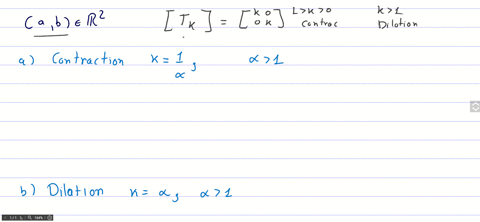 (a,b) ∈ ℝ² [T_k] = [k 0 1>k>0 k>1
0 k] Contrac Dilation
a) Contraction k = 1/α, α>1
b) Dilation k = α, α>1